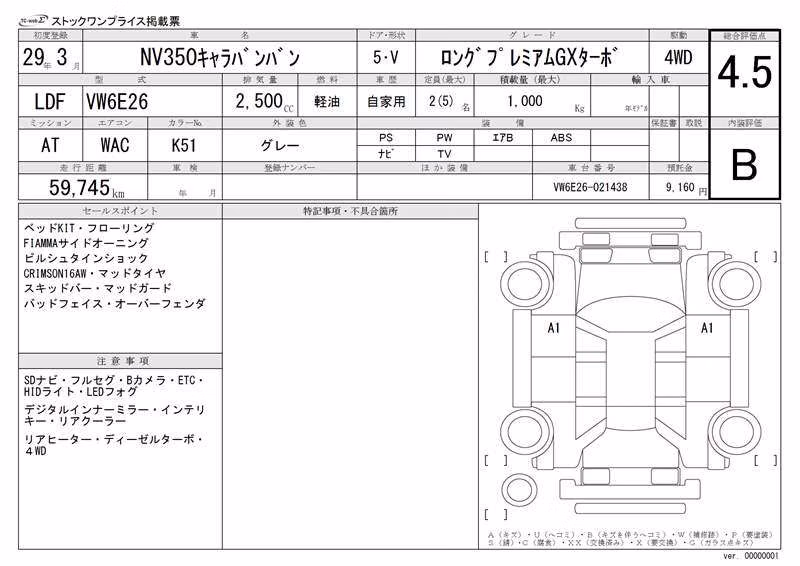 TC-webΣ ストックワンプライス掲載票
初度登録 車名 ドア・形状 グレード 駆動 総合評価点
29年 3月 NV350キャラバンバン 5・V ロングプレミアムGXターボ 4WD 4.5
型式 排気量 燃料 車歴 定員(最大) 積載量(最大) 輸入車
LDF VW6E26 2,500CC 軽油 自家用 2(5)名 1,000 Kg 年モデル
ミッション エアコン カラーNo. 外装色 装備 保証書 取説 内装評価
AT WAC K51 グレー PS PW エアB ABS B
ナビ TV
走行距離 車検 登録ナンバー ほか装備 車台番号 預託金
59,745km 年 月 VW6E26-021438 9,160円
セールスポイント
ベッドKIT・フローリング
FIAMMAサイドオーニング
ビルシュタインショック
CRIMSON16AW・マッドタイヤ
スキッドバー・マッドガード
バッドフェイス・オーバーフェンダ
注意事項
SDナビ・フルセグ・Bカメラ・ETC・
HIDライト・LEDフォグ
デジタルインナーミラー・インテリ
キー・リアクーラー
リアヒーター・ディーゼルターボ・
4WD
特記事項・不具合箇所
[ ] [ ]
A1 A1
[ ] [ ]
[ ]
A(キズ)・U(ヘコミ)・B(キズを伴うヘコミ)・W(補修跡)・P(要塗装)
S(錆)・C(腐食)・XX(交換済み)・X(要交換)・G(ガラス点キズ)
ver. 00000001